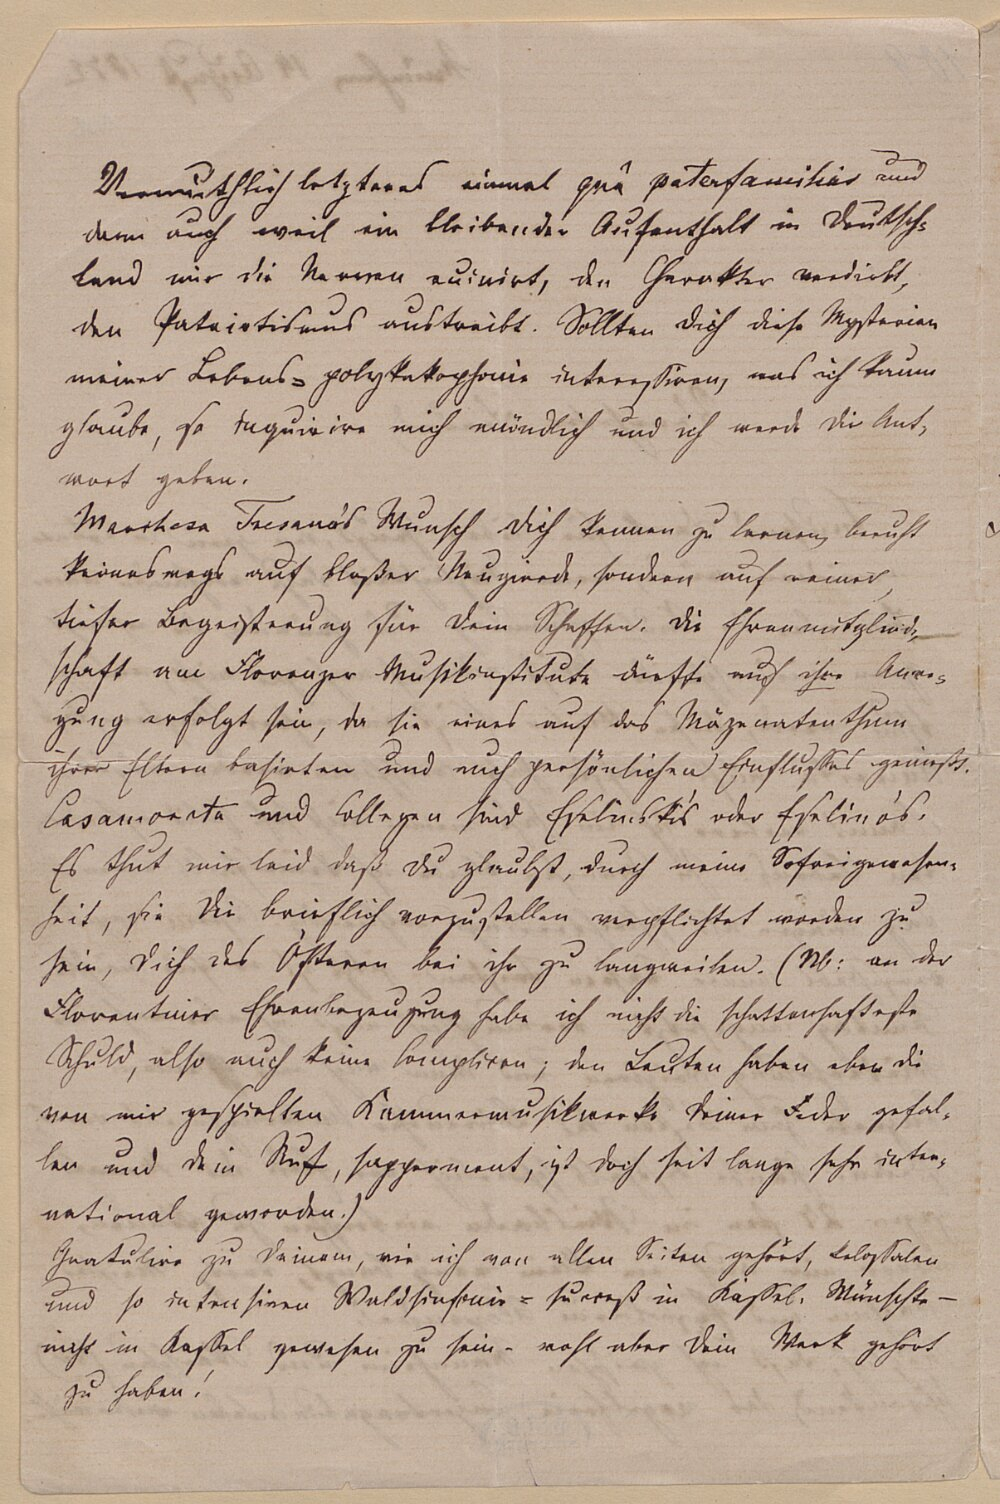 Vermuthlich letzteres einmal quâ paterfamilias und
dann auch weil ein bleibender Aufenthalt in Deutsch-
land mir die Nerven ruinirt, den Charakter verdirbt,
den Patriotismus austreibt. Sollten Dich diese Mysterien
meiner Lebens-polykakophonie interessiren, was ich kaum
glaube, so inquirire mich mündlich und ich werde Dir Ant-
wort geben.
Marchesa Tresana's Wunsch Dich kennen zu lernen, beruht
keineswegs auf bloßer Neugierde, sondern auf reiner,
tiefer Begeisterung für Dein Schaffen. Die Ehrenmitglied-
schaft am Florenzer Musikinstitute dürfte auf ihre Anre-
gung erfolgt sein, da sie eines auf das Mäzenatenthum
ihrer Eltern basirten und auch persönlichen Einflusses genießt.
Casamorata und Collegen sind Eselinski's oder Eselino's.
Es thut mir leid daß Du glaubst, durch meine Sofreigewesen-
heit, sie Dir brieflich vorzustellen verpflichtet worden zu
sein, Dich des Öfteren bei ihr zu langweilen. (NB: an der
Florentiner Ehrenbezeugung habe ich nicht die schattenhafteste
Schuld, also auch keine Complicen; den Leuten haben eben die
von mir gespielten Kammermusikwerke Deiner Feder gefal-
len und Dein Ruf, sapperment, ist doch seit lange sehr inter-
national geworden.)
Gratulire zu Deinem, wie ich von allen Seiten gehört, kolossalen
und so intensiven Waldsinfonie-succeß in Kassel. Wünschte —
nicht in Kassel gewesen zu sein - wohl aber Dein Werk gehört
zu haben!